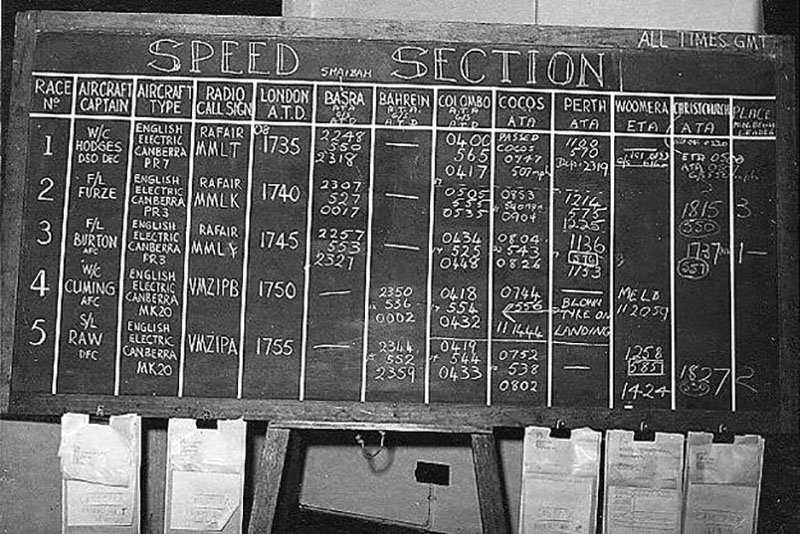 ALL TIMES GMT
SPEED SHAIBAH SECTION
RACE Nº AIRCRAFT CAPTAIN AIRCRAFT TYPE RADIO CALL SIGN LONDON A.T.D. BASRA BAHREIN COLOMBO COCOS ATA PERTH ATA WOOMERA ETA CHRISTCHURCH ATA PLACE
1 W/C HODGES DSO DFC ENGLISH ELECTRIC CANBERRA PR7 RAFAIR MMLT 1735 2248 550 2318 — 0400 565 0417 PASSED COCOS 0747 507mph
2 F/L FURZE ENGLISH ELECTRIC CANBERRA PR3 RAFAIR MMLK 1740 2307 527 0017 — 0505 535 0535 0853 0904 1214 575 1225 1815 550 3
3 F/L BURTON ENGLISH ELECTRIC CANBERRA PR3 RAFAIR MMLY 1745 2257 553 2321 — 0434 525 0448 0804 543 0826 1136 1153 1737 1 —
4 W/C CUMING AFC ENGLISH ELECTRIC CANBERRA MK20 VMZIPB 1750 — 2350 536 0002 0418 554 0432 0744 556 111444 — BLOWN TYRE ON LANDING MELB 112059
5 S/L RAW DFC ENGLISH ELECTRIC CANBERRA MK20 VMZIPA 1755 — 2344 552 2359 0419 544 0433 0752 538 0802 — 1258 585 14-24 1827 2